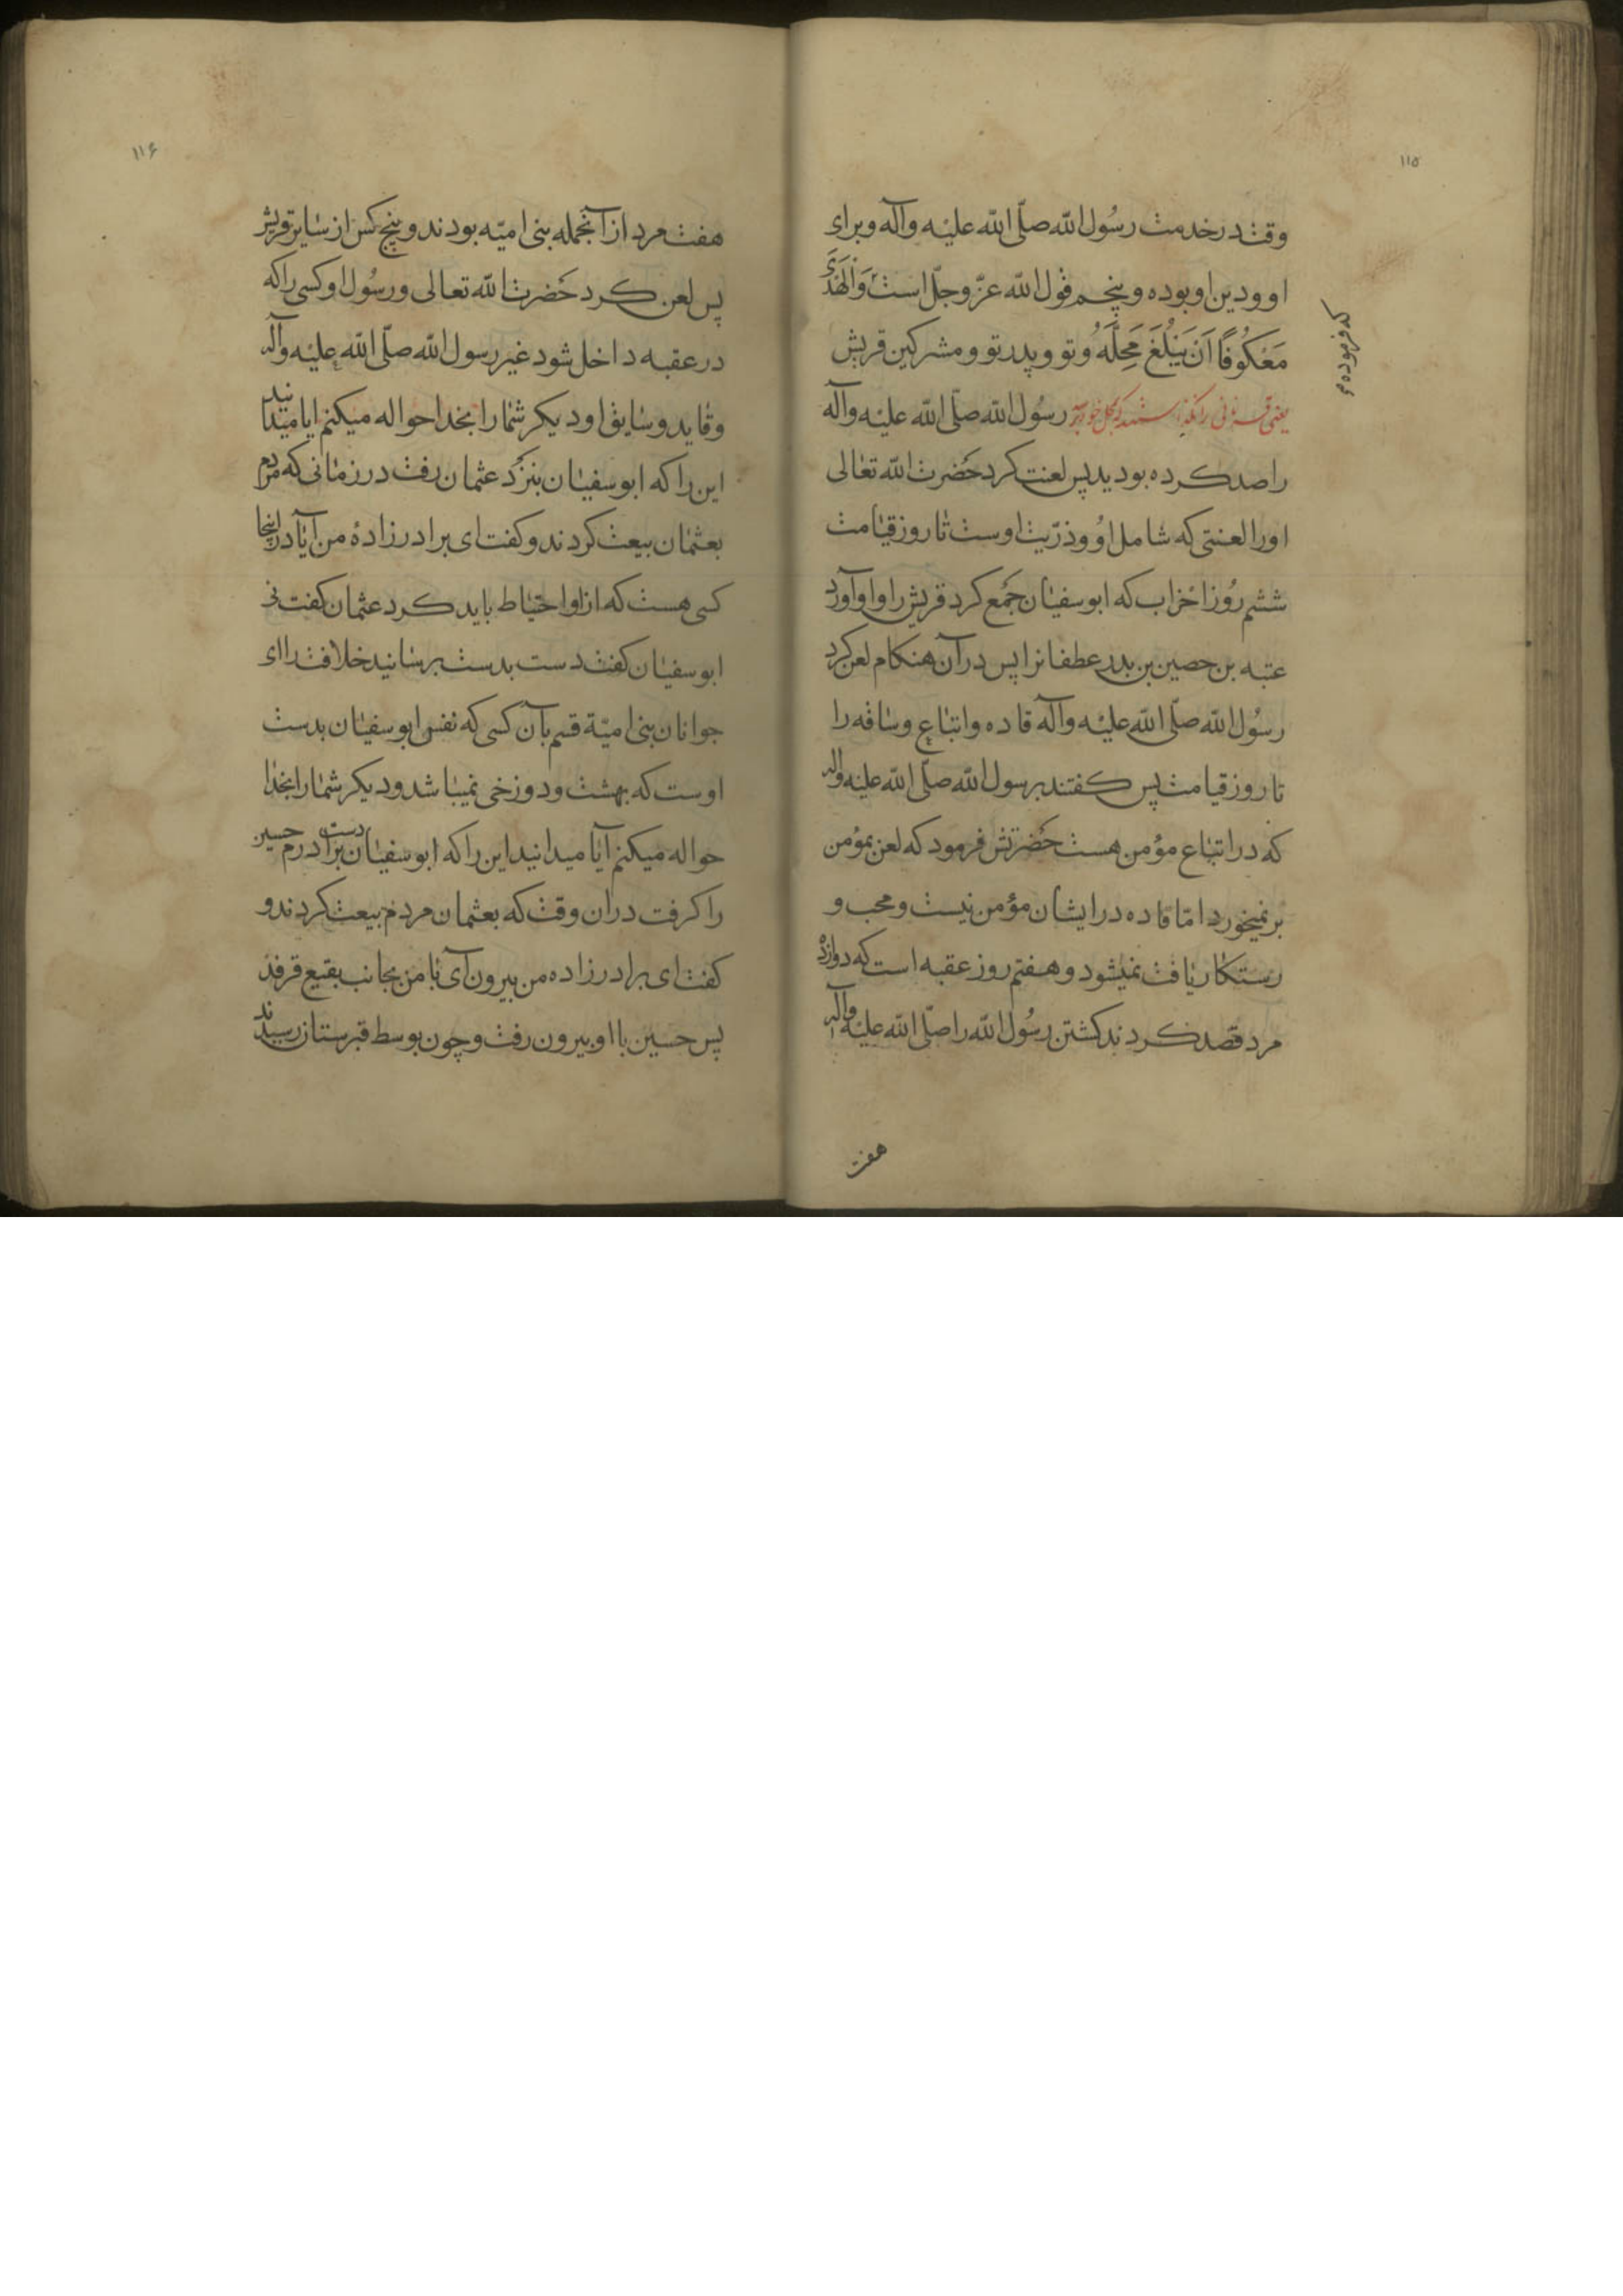 ۱۱۵
وقت در خدمت رسول الله صلّی الله علیه وآله وبرای
او ودین او بوده و پنجم قول الله عزّ وجلّ است وَالْهَدْیَ
که فرموده
مَعْکُوفًا اَنْ یَبْلُغَ مَحِلَّهُ وتو و پدر تو و مشرکین قریش
یعنی قربانی را نگذاشتند که بمحل خود برسد رسول الله صلّی الله علیه وآله
را صد کرده بودید پس لعنت کرد حضرت الله تعالی
او را لعنتی که شامل او وذرّیت اوست تا روز قیامت
ششم روز احزاب که ابوسفیان جمع کرد قریش را و او آورد
عتبه بن حصین بن بدر عطفانرا پس در آن هنکام لعن کرد
رسول الله صلّی الله علیه وآله قاده واتباع وساقه را
تا روز قیامت پس کفتند برسول الله صلّی الله علیه واله
که در اتباع مؤمن هست حضرتش فرمود که لعن بمؤمن
بر نمیخورد امّا قاده در ایشان مؤمن نیست ومحب و
رستکار یافت نمیشود و هفتم روز عقبه است که دوازده
مرد قصد کردند کشتن رسول الله را صلّی الله علیه وآله
هفت
۱۱۶
هفت مرد از آنجمله بنی امیّه بودند و پنج کس از سایر قریش
پس لعن کرد حضرت الله تعالی ورسول او کسی را که
در عقبه داخل شود غیر رسول الله صلّی الله علیه وآله
وقاید وسایق او دیکر شما را بخدا حواله میکنم ایا میدانید
این را که ابوسفیان بنزد عثمان رفت در زمانی که مردم
بعثمان بیعت کردند و کفت ای برادر زادهٔ من آیا در اینجا
کسی هست که از او احتیاط باید کرد عثمان کفت نی
ابوسفیان کفت دست بدست برسانید خلافت را ای
جوانان بنی امیّة قسم بآن کسی که نفس ابوسفیان بدست
اوست که بهشت ودوزخی نمیباشد ودیکر شما را بخدا
حواله میکنم آیا میدانید این را که ابوسفیان دست برادرم حسین
را کرفت در ان وقت که بعثمان مردم بیعت کردند و
کفت ای برادر زاده من بیرون آی با من بجانب بقیع قرفد
پس حسین با او بیرون رفت و چون بوسط قبرستان رسیدند